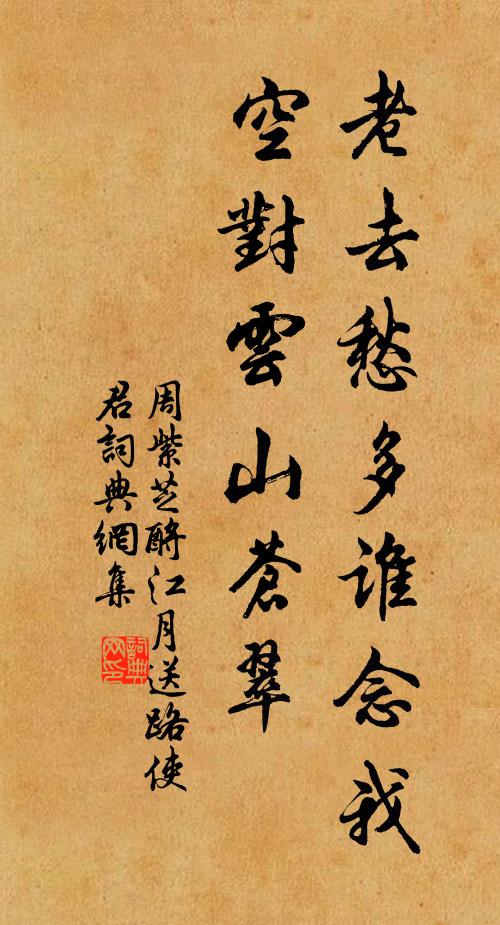 老去愁多谁念我
空對雲山蒼翠
周紫芝酹江月送路使
君詞典網集
詞典
网印